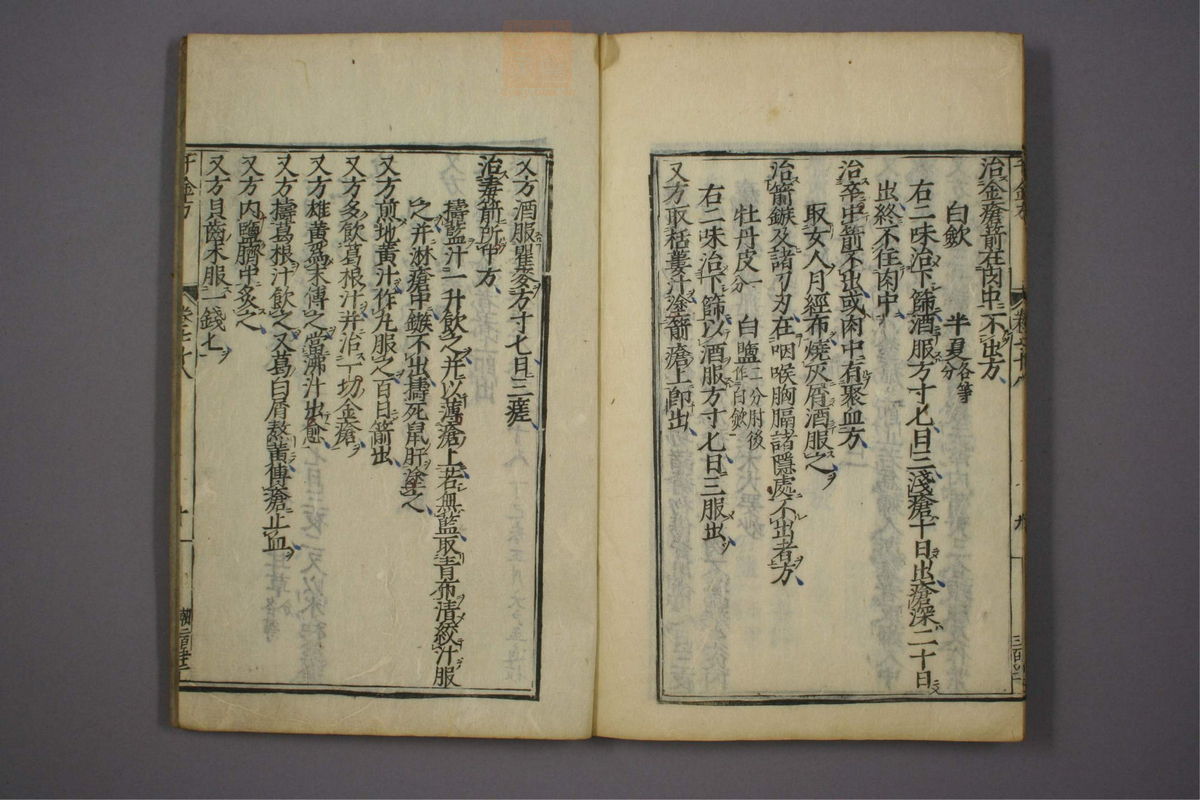 治金瘡箭在肉中不出方
白斂 半夏各等分
右二味治下篩酒服方寸匕日三淺瘡十日出瘡深二十日
出終不住肉中
治卒中箭不出或肉中有聚血方
取女人月經布燒灰屑酒服之
治箭鏃及諸刀刃在咽喉胸膈諸隱處不出者方
牡丹皮一分 白鹽二分肘後作白斂
右二味治下篩以酒服方寸匕日三服出
又方取栝蔞汁塗箭瘡上即出
又方酒服瞿麥方寸匕日三瘥
治毒箭所中方
擣藍汁一升飲之并以薄瘡上若無藍取青布漬絞汁服
之并淋瘡中鏃不出擣死鼠肝塗之
又方煎地黃汁作丸服之百日箭出
又方多飲葛根汁并治一切金瘡
又方雄黃爲末傅之當沸汁出愈
又方擣葛根汁飲之又葛白屑熬黃傅瘡止血
又方內鹽臍中炙之
又方貝齒末服一錢匕
千金方 卷七十八 十